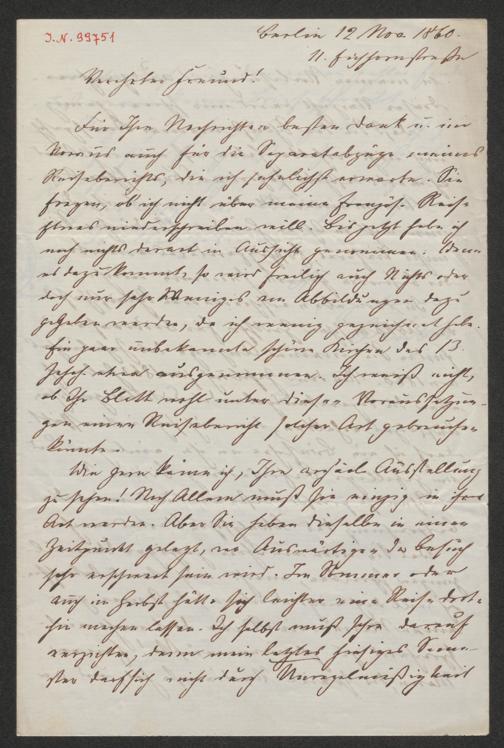 I.N. 99751
Berlin 12 Nov. 1860.
11. Eichhornstraße
Verehrter Freund!
Für Ihre Nachrichten besten Dank u. im
Voraus auch für die Separatabzüge meines
Reiseberichts, die ich sehnlichst erwarte. Sie
fragen, ob ich nicht über meine französ. Reise
Etwas niederschreiben will. Bis jetzt habe ich
noch nichts derart in Aussicht genommen. Wenn
es dazu kommt, so wird freilich auch Nichts oder
doch nur sehr Weniges an Abbildungen dazu
gegeben werden, da ich wenig gezeichnet habe.
Ein paar unbekannte schöne Kirchen des 13.
Jahrh. etwa ausgenommen. Ich weiß nicht,
ob Ihr Blatt wohl unter diesen Voraussetzun-
gen einen Reisebericht solcher Art gebrauchen
könnte.
Wie gern käme ich, Ihre archäol. Ausstellung
zu sehen! Nach Allem muß sie einzig in ihrer
Art werden. Aber Sie haben dieselbe in einen
Zeitpunkt gelegt, wo Auswärtigen der Besuch
sehr erschwert sein wird. Im Sommer oder
auch im Herbst hätte sich leichter eine Reise dort-
hin machen lassen. Ich selbst muß schon darauf
verzichten, denn mein letztes hiesiges Seme-
ster darf sich nicht durch Unregelmäßigkeit